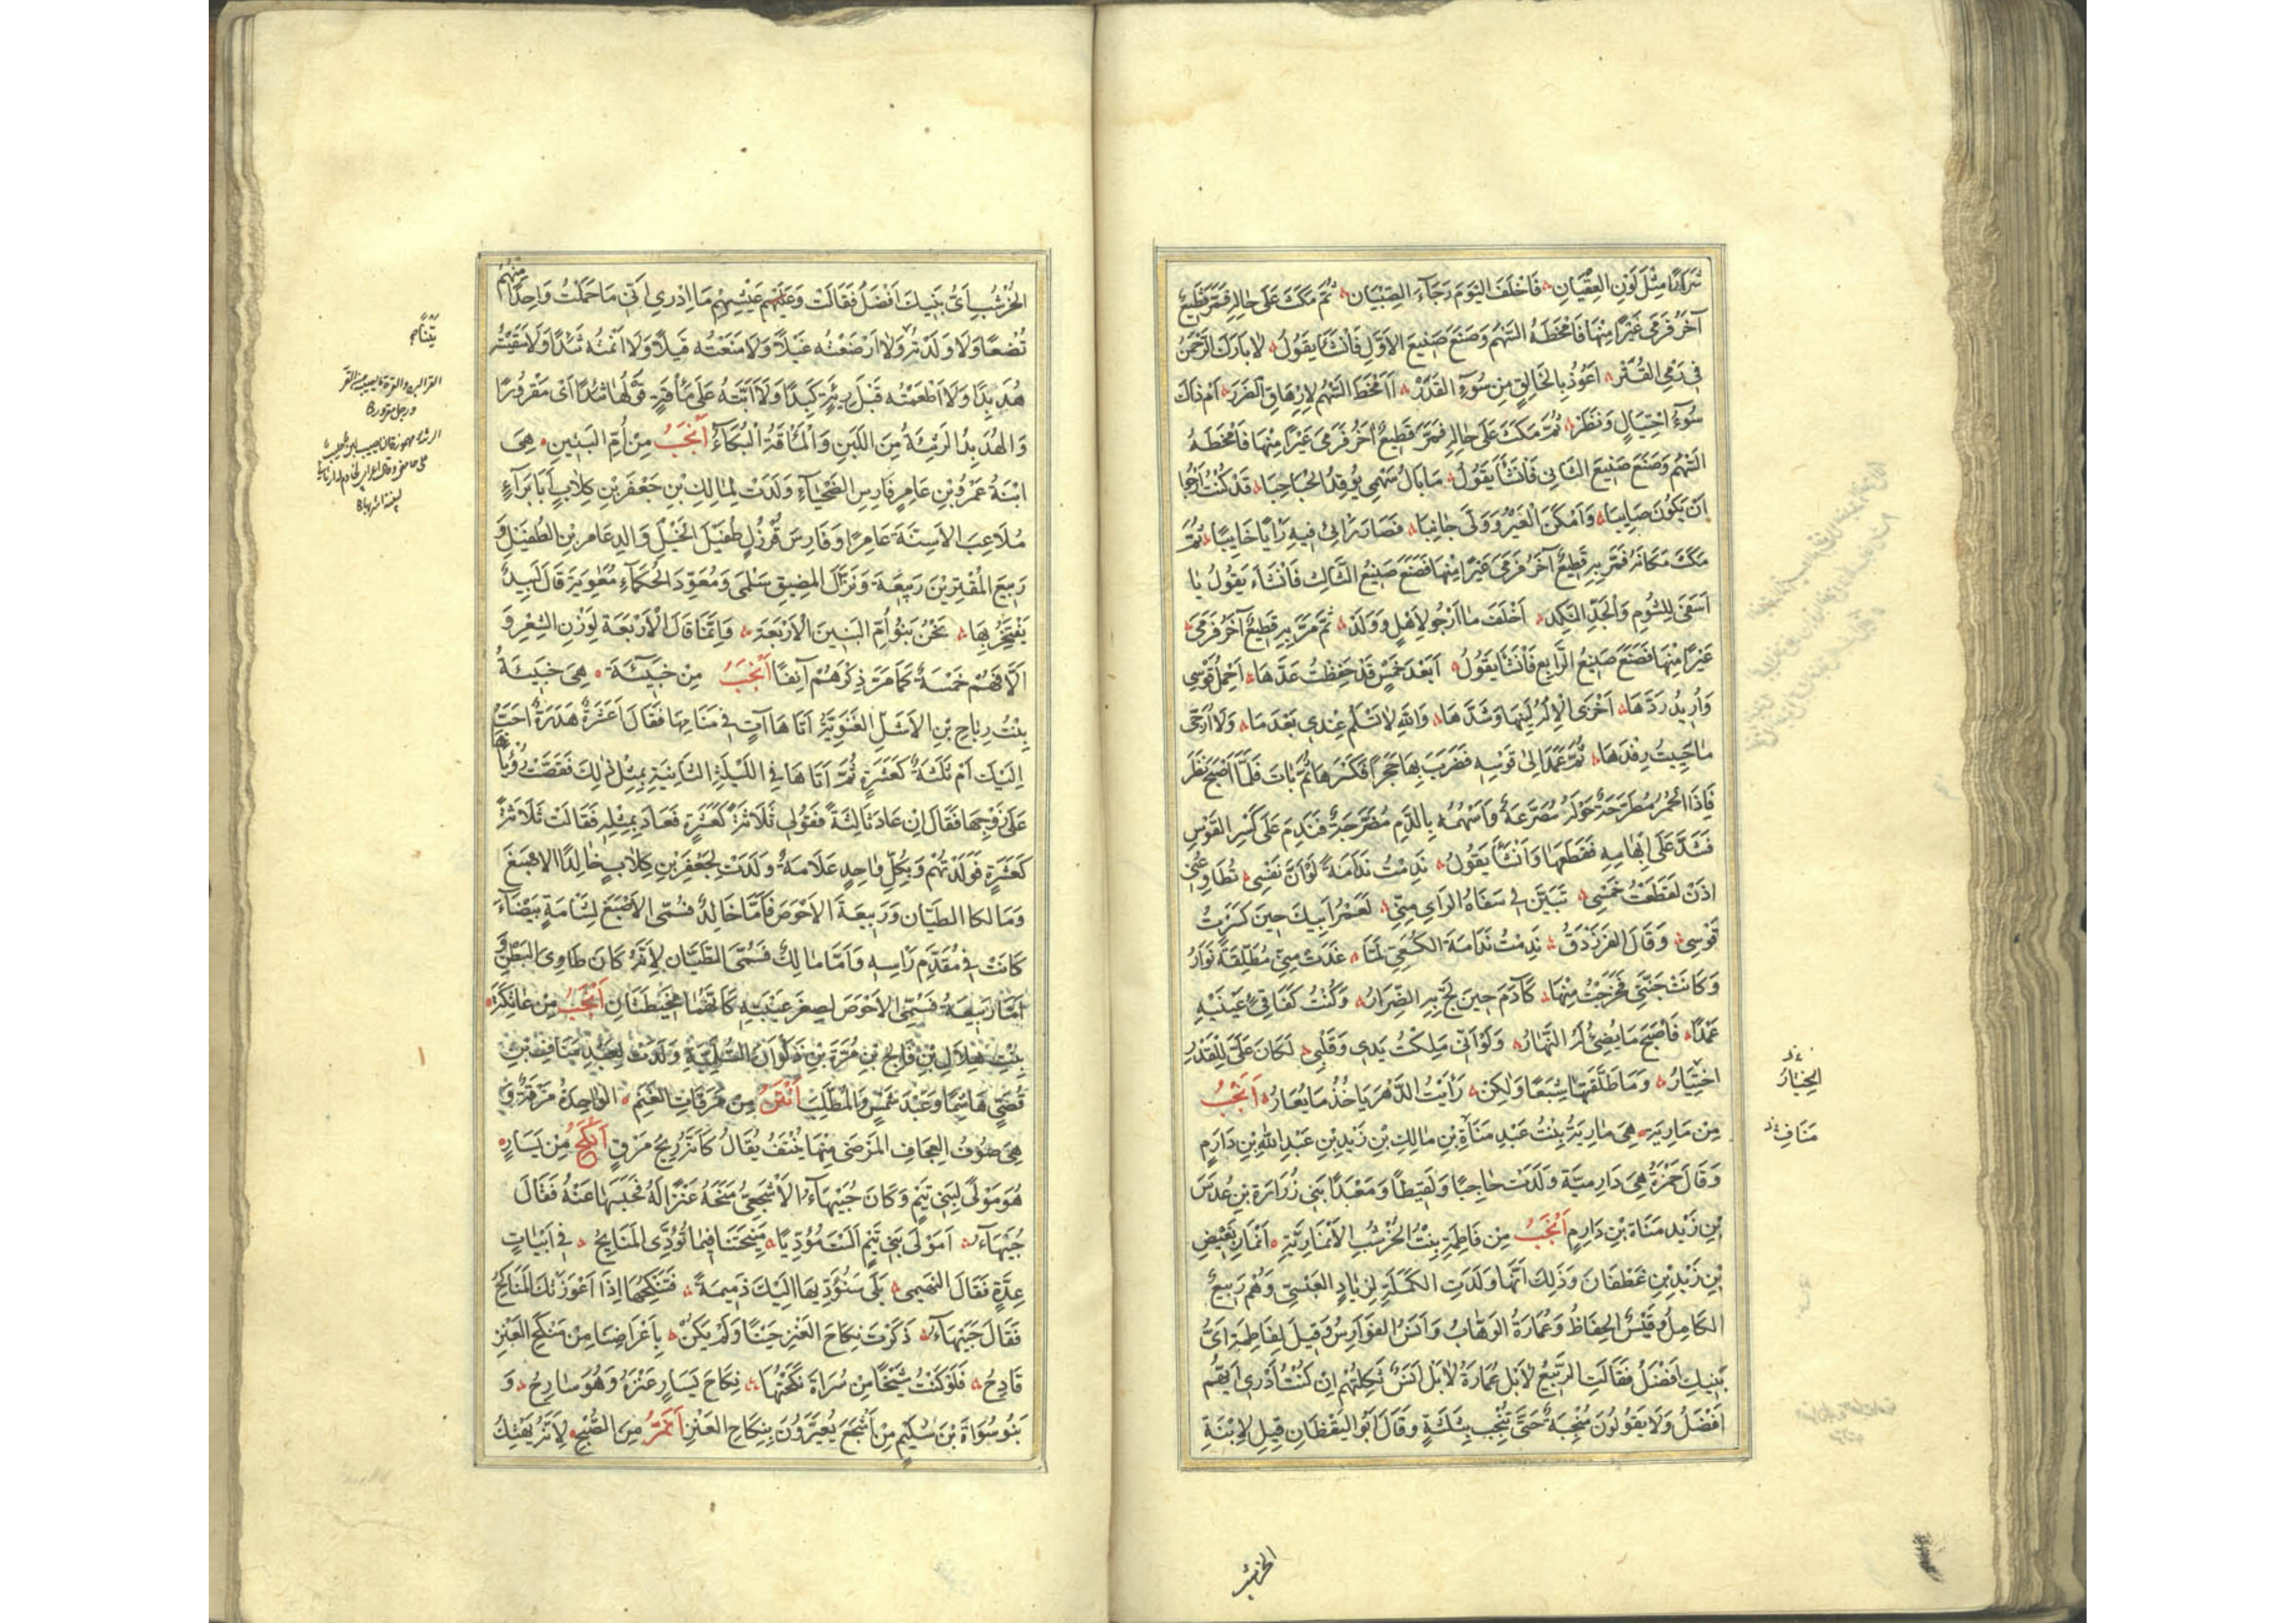 شَرَارًا مِثْلَ لَوْنِ العِقْيَانِ فَاَخْلَفَ اليَوْمَ رَجَآءَ الصِبْيَان ثُمَّ مَكَثَ عَلَى حَالِهِ فَمَرَّ قَطِيعٌ
آخَرُ فَرَمَى عَيْرًا مِنْهَا فَاَمْخَطَهُ السَّهْمُ وَصَنَعَ صَنِيعَ الاَوَّلِ فَاَنْشَأَ يَقُولُ لا بَارَكَ الرَّحْمَنُ
فِي رَمْيِ القُتَر اَعُوذُ بِالخَالِقِ مِنْ سُوءِ القَدَرْ اَاَمْخَطَ السَّهْمُ لِاِرْهَاقِ الضَرَرْ اَمْ ذَاكَ
سُوءُ احْتِيَالٍ وَنَظَرْ ثُمَّ مَكَثَ عَلَى حَالِهِ فَمَرَّ قَطِيعٌ آخَرُ فَرَمَى عَيْرًا مِنْهَا فَاَمْخَطَهُ
السَّهْمُ وَصَنَعَ صَنِيعَ الثَّانِي فَاَنْشَأَ يَقُولُ مَا بَالُ سَهْمِي يُوقِدُ الحُبَاحِبَا قَدْ كُنْتُ اَرْجُو
اَنْ يَكُونَ صَايِبَا وَاَمْكَنَ العَيْرُ وَوَلَّى جَانِبَا فَصَارَ رَائِي فِيهِ رَايًا خَايِبًا ثُمَّ
مَكَثَ مَكَانَهُ فَمَرَّ بِهِ قَطِيعٌ آخَرُ فَرَمَى عَيْرًا مِنْهَا فَصَنَعَ صَنِيعَ الثَّالِث فَاَنْشَاَ يَقُولُ يَا
اَسَفَى لِلشُّومِ وَالجَدِّ النَّكِد اَخْلَفَ مَا اَرْجُو لِاَهْلٍ وَوَلَدْ ثُمَّ مَرَّ بِهِ قَطِيعٌ آخَرُ فَرَمَى
عَيْرًا مِنْهَا فَصَنَعَ صَنِيعَ الرَّابِعِ فَاَنْشَأَ يَقُولُ اَبَعْدَ خَمْسٍ قَدْ حَفِظْتُ عَدَّهَا اَحْمِلُ قَوْسِي
وَاُرِيدُ رَدَّهَا اَخْزَى الاِلَهُ لِيْنَهَا وَشَدَّهَا وَاللّهِ لَا تَسْلَمُ عِنْدِي بَعْدَهَا وَلَا اُرَجِّى
مَا حَيِيتُ رِفْدَهَا ثُمَّ عَمَدَ اِلَى قَوْسِهِ فَضَرَبَ بِهَا حَجَرًا فَكَسَرَهَا ثُمَّ بَاتَ فَلَمَّا اَصْبَحَ نَظَرَ
فَاِذَا الحُمُرُ مُطَرَحَةٌ حَوْلَهُ مُصَرَّعَةٌ وَاَسْهُمُهُ بِالدَّمِ مُضَرَّجَةٌ فَنَدِمَ عَلَى كَسْرِ القَوْسِ
فَشَدَّ عَلَى اِبْهَامِهِ فَقَطَعَهَا وَاَنْشَأَ يَقُولُ نَدِمْتُ نَدَامَةً لَوْ اَنَّ نَفْسِي تُطَاوِعُنِي
اِذَنْ لَقَطَعْتُ خَمْسِي تَبَيَّنَ لِي سَفَاهُ الرَايِ مِنِّي لَعَمْرُ اَبِيكَ حِينَ كَسَرْتُ
قَوْسِي وَقَالَ الفَرَزْدَقُ نَدِمْتُ نَدَامَةَ الكُسَعِيِّ لَمَّا غَدَتْ مِنِّي مُطَلَّقَةً نَوَارُ
وَكَانَتْ جَنَّتِي فَخَرَجْتُ مِنْهَا كَآدَمَ حِينَ لَجَّ بِهِ الضِّرَارُ وَكُنْتُ كَفَاقِيٍ عَيْنَيْهِ
عَمْدًا فَاَصْبَحَ مَا يُضِيْءُ لَهُ النَّهَارُ وَلَوْ اَنِّي مَلِكْتُ يَدِي وَقَلْبِي لَكَانَ عَلَيَّ لِلْقَدَرِ
اخْتِيَارُ وَمَا طَلَّقْتُهَا شِبَعًا وَلٰكِنْ رَاَيْتُ الدَّهْرَ يَاخُذُ مَا يُعَارُ اَنْجَبُ
مِنْ مَارِيَةَ هِيَ مَارِيَةُ بِنْتُ عَبْدِ مَنَاةِ بْنِ مَالِكِ بْنِ زَيْدِ بْنِ عَبْدِ اللهِ بْنِ دَارِمٍ
وَقَالَ حَمْزَةُ هِيَ دَارِمِيَّة وَلَدَتْ حَاجِبًا وَلَقِيطًا وَمَعْبَدًا بَنِي زُرَارَةَ بْنِ عُدَسَ
بْنِ زَيْدِ مَنَاةَ بْنِ دَارِمٍ اَنْجَبُ مِن فَاطِمَةَ بِنْتُ الخُرْشُبِ الاَنْمَارِيَّةِ اَنْمَارِ بَغِيضِ
بْنِ زَيْدِ بْنِ غَطْفَانَ وَذَلِكَ اَنَّهَا وَلَدَتِ الكَمَلَةَ لِزِيَادٍ العَبْسِيِّ وَهُمْ رَبِيعٌ
الكَامِلُ وَقَيْسُ الحِفَاظُ وَعُمَارَةُ الوَهَّابُ وَاَنَسُ الفَوَارِسُ وَقِيلَ لِفَاطِمَةَ اَيُّ
بَنِيكِ اَفْضَلُ فَقَالَتِ الرَّبِيعُ لَا بَلْ عُمَارَةُ لَا بَلْ اَنَسٌ ثَكِلْتُهُمْ اِنْ كُنْتُ اَدْرِي اَيُّهُمْ
اَفْضَلُ وَلَا يَقُولُونَ مُنْجِبَةٌ حَتَّى تُنْجِبَ بِثَلَثَةٍ وَقَالَ اَبُو اليَقْظَانِ قِيلَ لِاِبْنَةِ
الِخْتِيَارُ
مَنَافِ
الخرشب
الخُرْشُبِ اَيُّ بَنِيكَ اَفْضَلُ فَقَالَتْ وَعَيْشِهِمْ مَا اَدْرِي اَنِّي مَا حَمَلْتُ وَاحِدًا مِنْهُمْ
تُضْعًا وَلَا وَلَدْتُهُ وَلَا اَرْضَعْتُه غَيْلًا وَلَا مَنَعْتُه قَيْلًا وَلَا اَنَمْتُه ثَئِدًا وَلَا سَقَيْتُهُ
هُدَبِدًا وَلَا اَطْعَمْتُه قَبْلَ رِيَةٍ كَبِدًا وَلَا اَبَتُّهُ عَلَى مَأْقَةٍ قَوْلُهَا ثَئِدًا اَىْ مَقْرُورًا
وَالهُدَبِدُ الرَّثِيْئَةُ مِنَ اللَّبَنِ وَالْمَأْقَةُ البُكَاءُ اَنْجَبُ مِنْ اُمِّ البَنِينِ هِيَ
ابْنَةُ عَمْرُو بْنِ عَامِرٍ فَارِسِ الضَّحْيَآءِ وَلَدَتْ لِمَالِكِ بْنِ جَعْفَرِ بْنِ كِلَابٍ اَبَا بَرَآءٍ
مُلَاعِبَ الاَسِنَّةِ عَامِرًا وَفَارِسَ قُرْزُلٍ طُفَيْلَ الخَيْلِ وَالِدَ عَامِرِ بْنِ الطُفَيْلِ وَ
رَبِيعَ المُقْتِرِيْنَ رَبِيعَةَ وَنَزَّالَ المَضِيقِ سَلْمَى وَمُعَوِّدَ الحُكَمَآءِ مُعَاوِيَةَ قَالَ لَبِيدٌ
يَفْتَخِرُ بِهَا نَحْنُ بَنُو اُمِّ البَنِينَ الاَرْبَعَة وَاِنَّمَا قَالَ الْاَرْبَعَةَ لِوَزْنِ الشِعْرِ وَ
اِلَّا فَهُمْ خَمْسَةٌ كَمَا مَرَّ ذِكْرُهُمْ آنِفًا اَنْجَبُ مِنْ خَبِيْئَةَ هِيَ خَبِيْئَةُ
بِنْتُ رِيَاحِ بْنِ الاَشَلِّ الغَنَوِيَّةُ اَتَاهَا آتٍ فِي مَنَامِهَا فَقَالَ اَعَشَرَةٌ هَدَرَةٌ اَحَبُّ
اِلَيْكِ اَمْ ثَلَثَةٌ كَعَشَرَةٍ ثُمَّ اَتَاهَا فِي اللَّيْلَةِ الثَّانِيَةِ بِمِثْلِ ذٰلِكَ فَقَصَّتْ رُؤْيَاهَا
عَلَى زَوْجِهَا فَقَالَ اِنْ عَادَ ثَالِثَةً فَقُولِي ثَلَاثَةٌ كَعَشَرَةٍ فَعَادَ بِمِثْلِهِ فَقَالَتْ ثَلَاثَةٌ
كَعَشَرَةٍ فَوَلَدَتْهُمْ وَبِكُلِّ وَاحِدٍ عَلَامَةٌ وَلَدَتْ لِجَعْفَرِ بْنِ كِلَابٍ خَالِدًا الاَصْبَغَ
وَمَالِكًا الطَيَّان وَرَبِيعَةَ الاَحْوَصَ فَاَمَّا خَالِدٌ فَسُمِّى الاَصْبَغَ لِشَامَةٍ بَيْضَآءَ
كَانَتْ فِي مُقَدَّمِ رَاسِهِ وَاَمَّا مَالِكٌ فَسُمِّى الطَيَّانَ لِاَنَّهُ كَانَ طَاوِىَ البَطْنِ وَ
اَمَّا رَبِيعَةُ فَسُمِّىَ الاَحْوَصَ لِصِغَرِ عَيْنَيْهِ كَاَنَّهُمَا مَخِيطَتَانِ اَنْجَبُ مِنْ عَاتِكَةَ
بِنْتِ هِلَالِ بْنِ فَالِجِ بْنِ مُرَّةَ بْنِ ذَكْوَانَ السُّلَمِيَّةِ وَلَدَتْ لِعَبْدِ مَنَافِ بْنِ
قُصَيٍّ هَاشِمًا وَعَبْدَ شَمْسٍ وَالمُطَّلِبَ اَنْتَنُ مِنْ مَرَقَاتِ الغَنَمِ الوَاحِدَةُ مَرَقَةٌ وَ
هِيَ صُوفُ العِجَافِ المَرْضَى مِنْهَا يُنْتَفُ يُقَالُ كَاَنَّهُ رِيحُ مَرَقٍ اَنْكَحُ مِنْ يَسَارٍ
هُوَ مَوْلًى لِبَنِي تَيْمٍ وَكَانَ جُبَيْهَآءُ الاَشْجَعِيُّ مَنَحَهُ عَنْزًا لَهُ فَحَبَسَهَا عَنْهُ فَقَالَ
جُبَيْهَآءُ اَمَوْلَى بَنِي تَيْمٍ اَلَسْتَ مُؤَدِّيًا مَنِيحَتَنَا فِيمَا تُؤَدَّى المَنَايِحُ فِي اَبْيَاتٍ
عِدَّةٍ فَقَالَ التَيْمِي بَلَى سَنُؤَدِّيهَا اِلَيْكَ ذَمِيمَةً فَتَنْكِحُهَا اِذَا اَعْوَزَتْكَ المَنَاكِحُ
فَقَالَ جُبَيْهَآءُ ذَكَرْتَ نِكَاحَ العَنْزِ حِيْنًا وَلَمْ يَكُنْ بِاَعْرَاضِنَا مِنْ مَنْكَحِ العَنْزِ
قَادِحُ فَلَوْ كُنْتُ شَيْخًا مِنْ سُرَاةَ نَكَحْتُهَا نِكَاحَ يَسَارٍ عَنْزَهُ وَهُوَ سَارِحُ وَ
بَنُو سُوَاةَ بْنِ سُلَيْمٍ مِنْ اَشْجَعَ يُعَيَّرُونَ بِنِكَاحِ العَنْزِ اَنَمُّ مِنَ الصُّبْحِ لِاَنَّهُ يَهْتِكُ